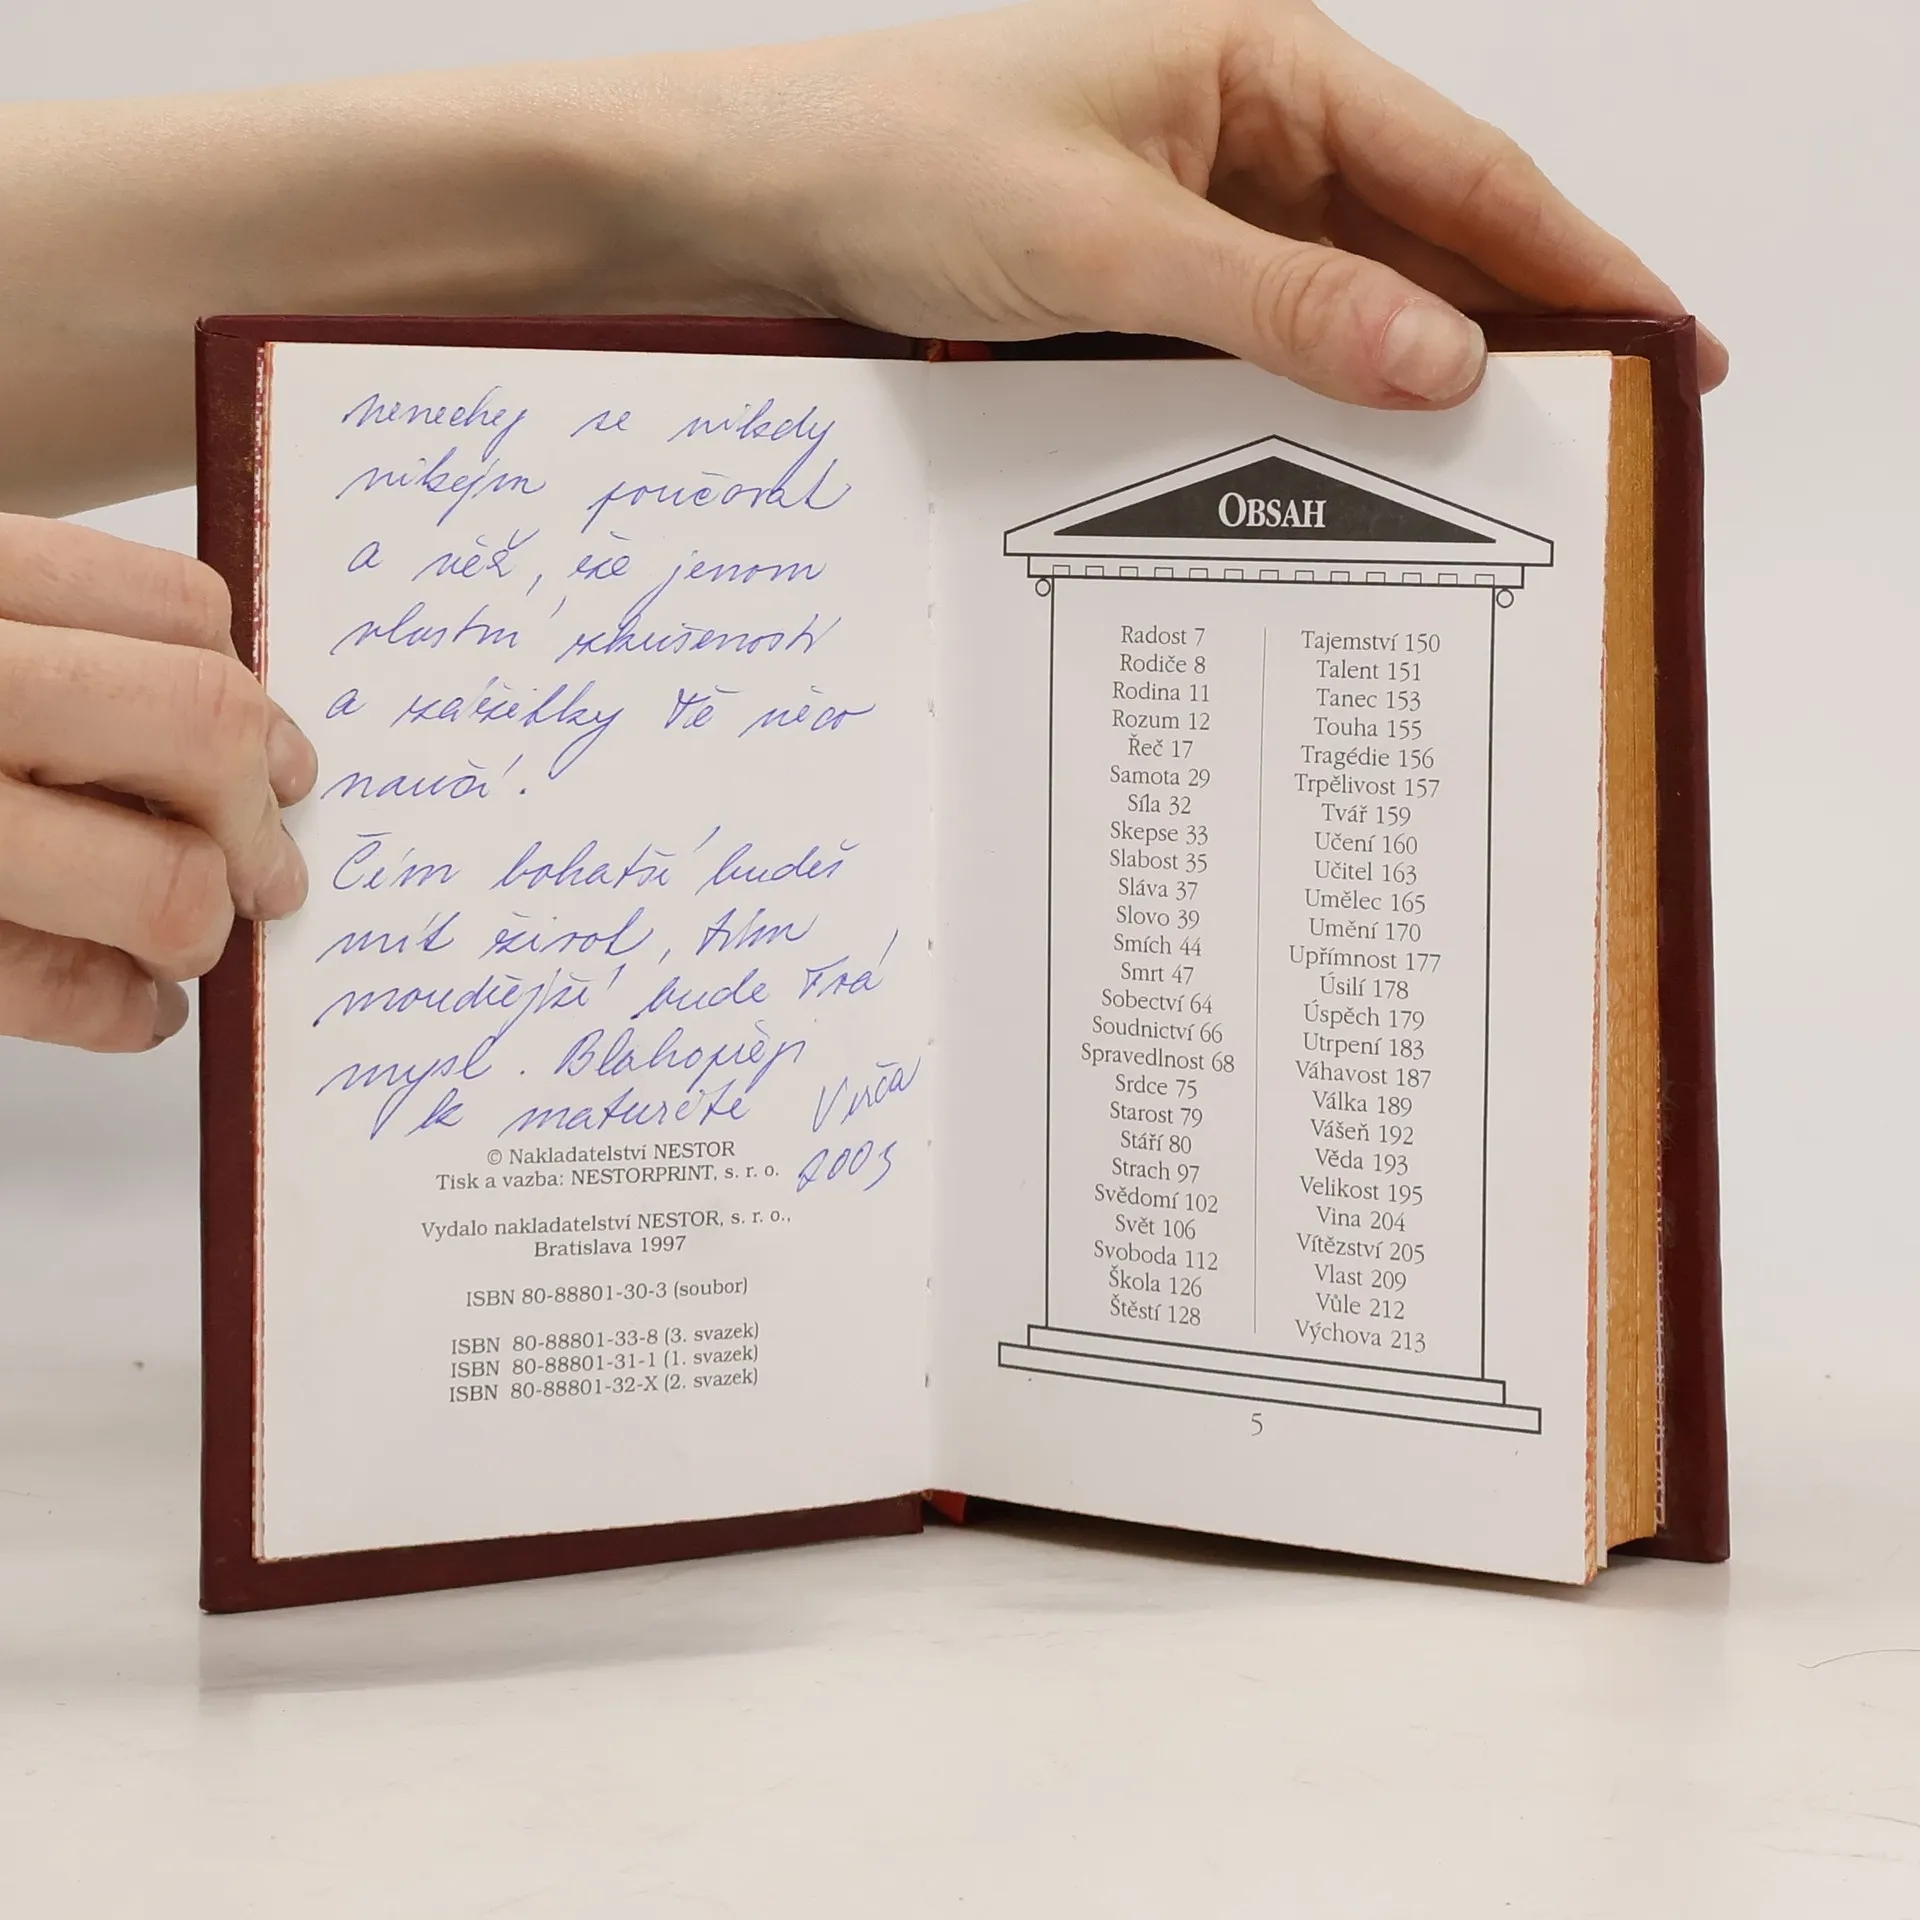 nenechej se nikdy
nikým poučovat
a věž, že jenom
vlastní zkušenosti
a zážitky Tě něco
naučí.
Čím bohatší budeš
mít život, tím
moudřejší bude Tvá
mysl. Blahopřeji
k maturitě Verča
2003
© Nakladatelství NESTOR
Tisk a vazba: NESTORPRINT, s. r. o.
Vydalo nakladatelství NESTOR, s. r. o.,
Bratislava 1997
ISBN 80-88801-30-3 (soubor)
ISBN 80-88801-33-8 (3. svazek)
ISBN 80-88801-31-1 (1. svazek)
ISBN 80-88801-32-X (2. svazek)
OBSAH
Radost 7
Rodiče 8
Rodina 11
Rozum 12
Řeč 17
Samota 29
Síla 32
Skepse 33
Slabost 35
Sláva 37
Slovo 39
Smích 44
Smrt 47
Sobectví 64
Soudnictví 66
Spravedlnost 68
Srdce 75
Starost 79
Stáří 80
Strach 97
Svědomí 102
Svět 106
Svoboda 112
Škola 126
Štěstí 128
Tajemství 150
Talent 151
Tanec 153
Touha 155
Tragédie 156
Trpělivost 157
Tvář 159
Učení 160
Učitel 163
Umělec 165
Umění 170
Upřímnost 177
Úsilí 178
Úspěch 179
Utrpení 183
Váhavost 187
Válka 189
Vášeň 192
Věda 193
Velikost 195
Vina 204
Vítězství 205
Vlast 209
Vůle 212
Výchova 213
5